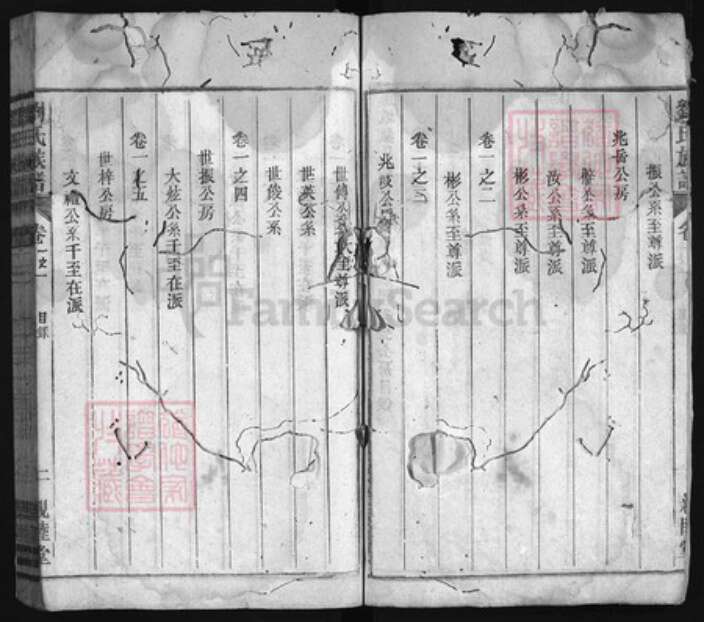 劉氏族譜
振公系至尊派
兆岳公房
公系至尊派
汝公系至尊派
彬公系至尊派
卷一之二
彬公系至尊派
卷一之三
兆
世傳公系大至尊派
世英公系
世俊公系
卷一之四
世振公房
大宏公系千至在派
卷一之五
世梓公房
文禮公系千至在派
劉氏族譜
卷一之一
目錄
二
親睦堂
FamilySearch